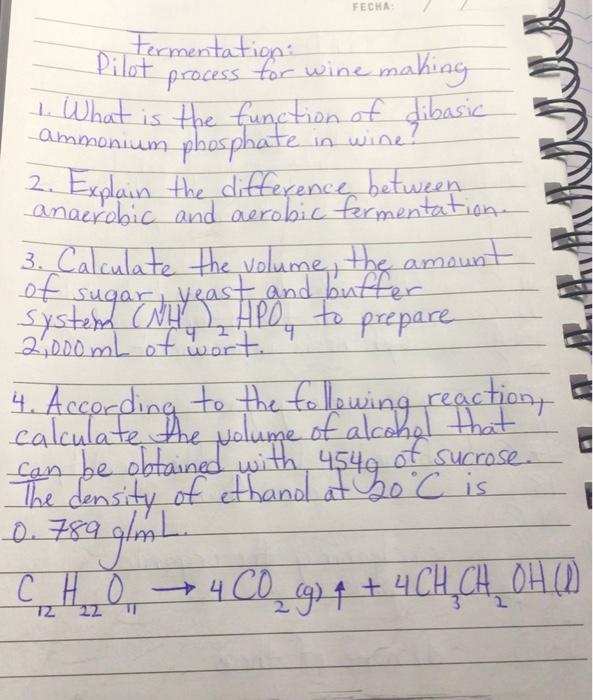 FECHA: / /
Fermentation:
Pilot process for wine making
1. What is the function of dibasic
ammonium phosphate in wine?
2. Explain the difference between
anaerobic and aerobic fermentation.
3. Calculate the volume, the amount
of sugar, yeast and buffer
system (NH₄)₂HPO₄ to prepare
2,000 mL of wort.
4. According to the following reaction,
calculate the volume of alcohol that
can be obtained with 454g of sucrose.
The density of ethanol at 20°C is
0.789 g/mL.
C₁₂H₂₂O₁₁ → 4CO₂(g)↑ + 4CH₃CH₂OH(l)